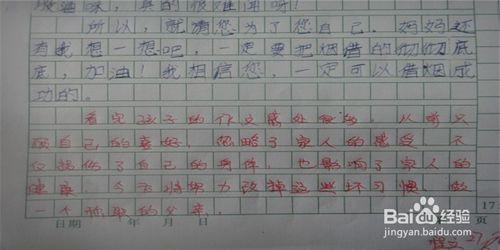 吸油味，真的很难闻呀！
所以，就请您为了您自己、妈妈还
有我想一想吧，一定要把烟借的彻彻底
底，加油！我相信您，一定可以借烟成
功的。
看完孩子的作文感处很深，从前只
顾自己的喜好，忽略了家人的感受，不
仅损伤了自己的身体，也影响了家人的
健康。今天将努力改掉这些坏习惯，做
一个称职的父亲。
日期 年 月 日
17
页
Baidu 经验
jingyan.baidu.com